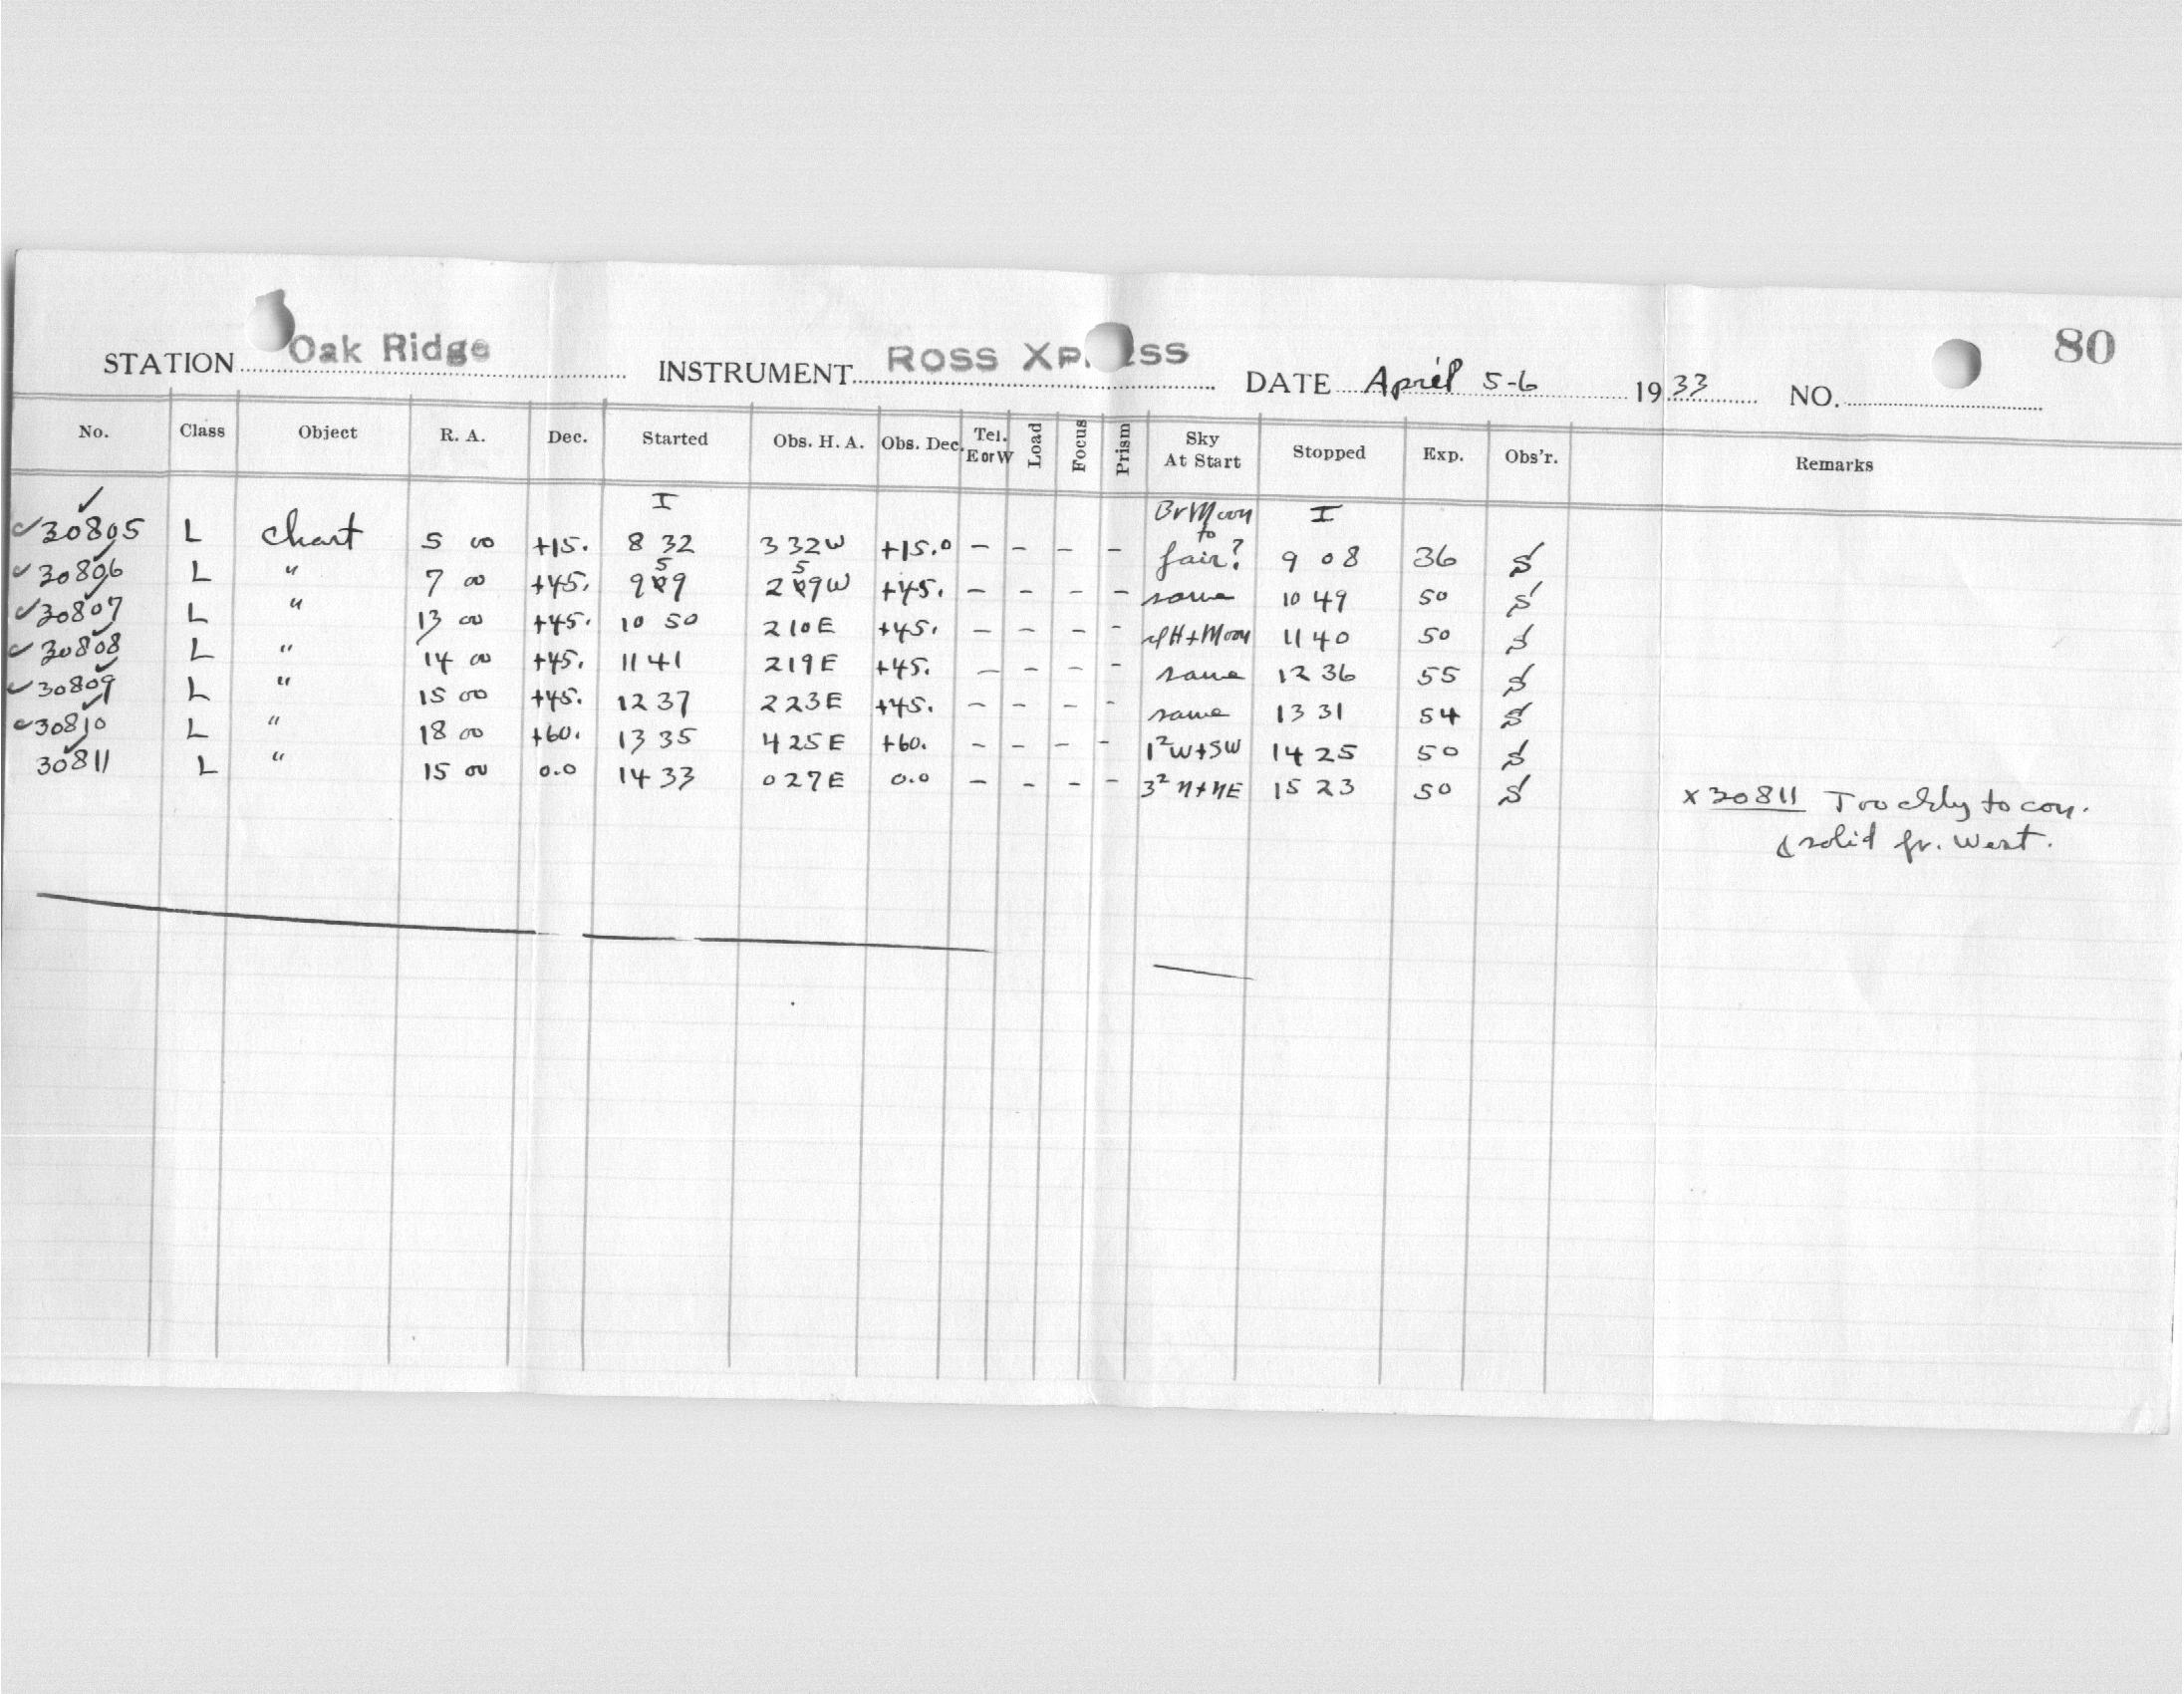 80
STATION Oak Ridge INSTRUMENT Ross Xpress DATE April 5-6 1933 NO.
No. Class Object R. A. Dec. Started Obs. H. A. Obs. Dec. Tel. E or W Load Focus Prism Sky At Start Stopped Exp. Obs'r. Remarks
I Br Moon to I
✓30805 L chart 5 00 +15. 8 32 3 32W +15.0 - - - - fair? 9 08 36 S
✓30806 L " 7 00 +45. 9 59 2 59W +45. - - - - same 10 49 50 S
✓30807 L " 13 00 +45. 10 50 2 10E +45. - - - - H+Moon 11 40 50 S
✓30808 L " 14 00 +45. 11 41 2 19E +45. - - - - same 12 36 55 S
✓30809 L " 15 00 +45. 12 37 2 23E +45. - - - - same 13 31 54 S
✓30810 L " 18 00 +60. 13 35 4 25E +60. - - - - 1² W+SW 14 25 50 S
30811 L " 15 00 0.0 14 33 0 27E 0.0 - - - - 3² N+NE 15 23 50 S
x 30811 Too cldy to con.
& solid fr. West.